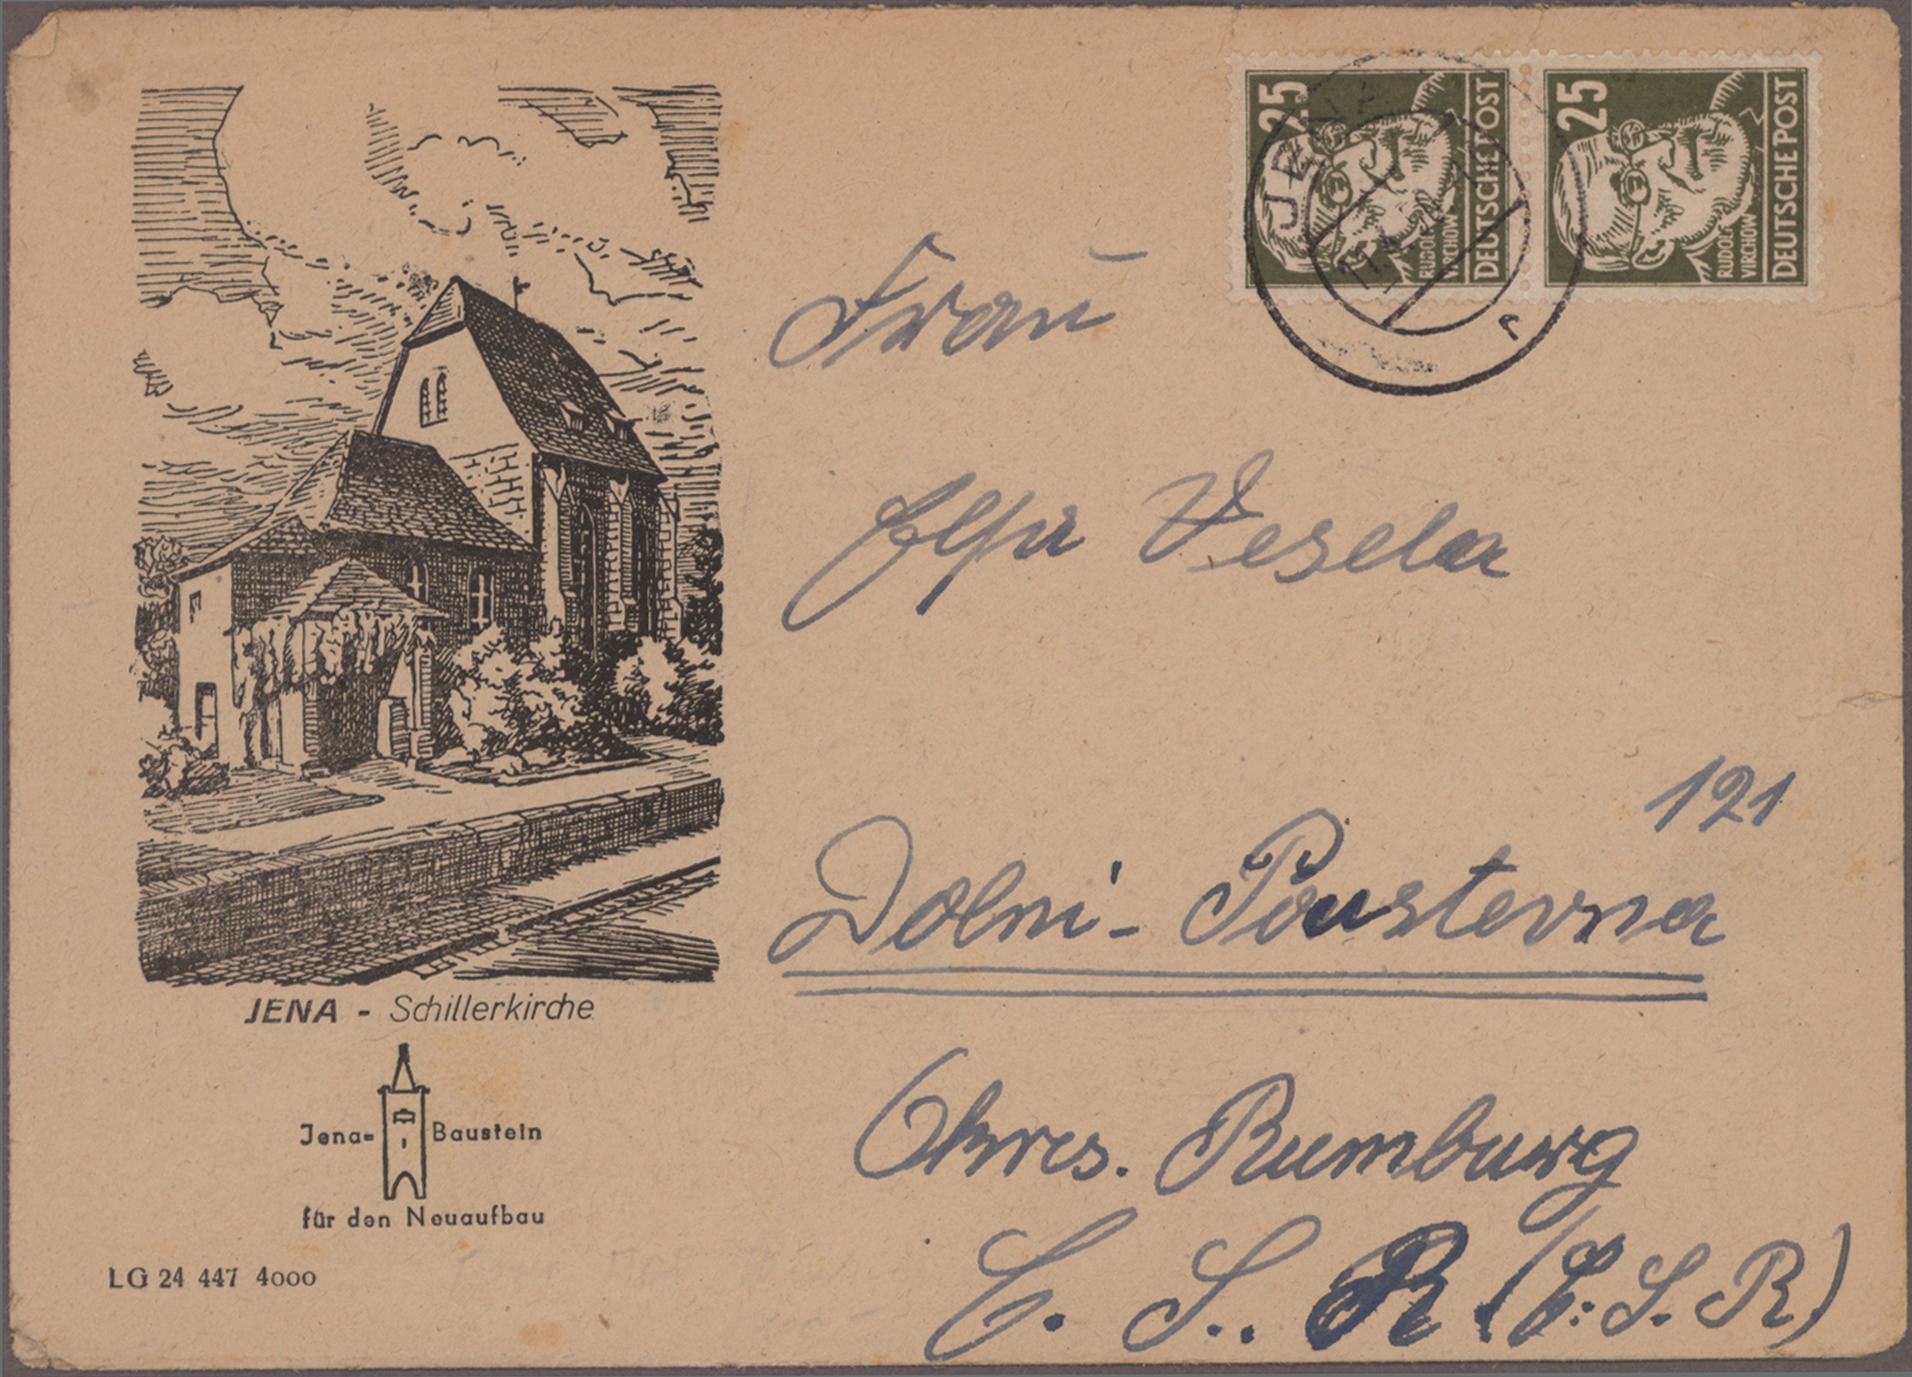 25 DEUTSCHE POST RUDOLF VIRCHOW
25 DEUTSCHE POST RUDOLF VIRCHOW
JENA
r
Frau
Vesela
121
Dolni - Pousterna
Okres. Rumburg
Č. S. R. (Č. S. R.)
JENA - Schillerkirche
Jena-Baustein
für den Neuaufbau
LG 24 447 4000